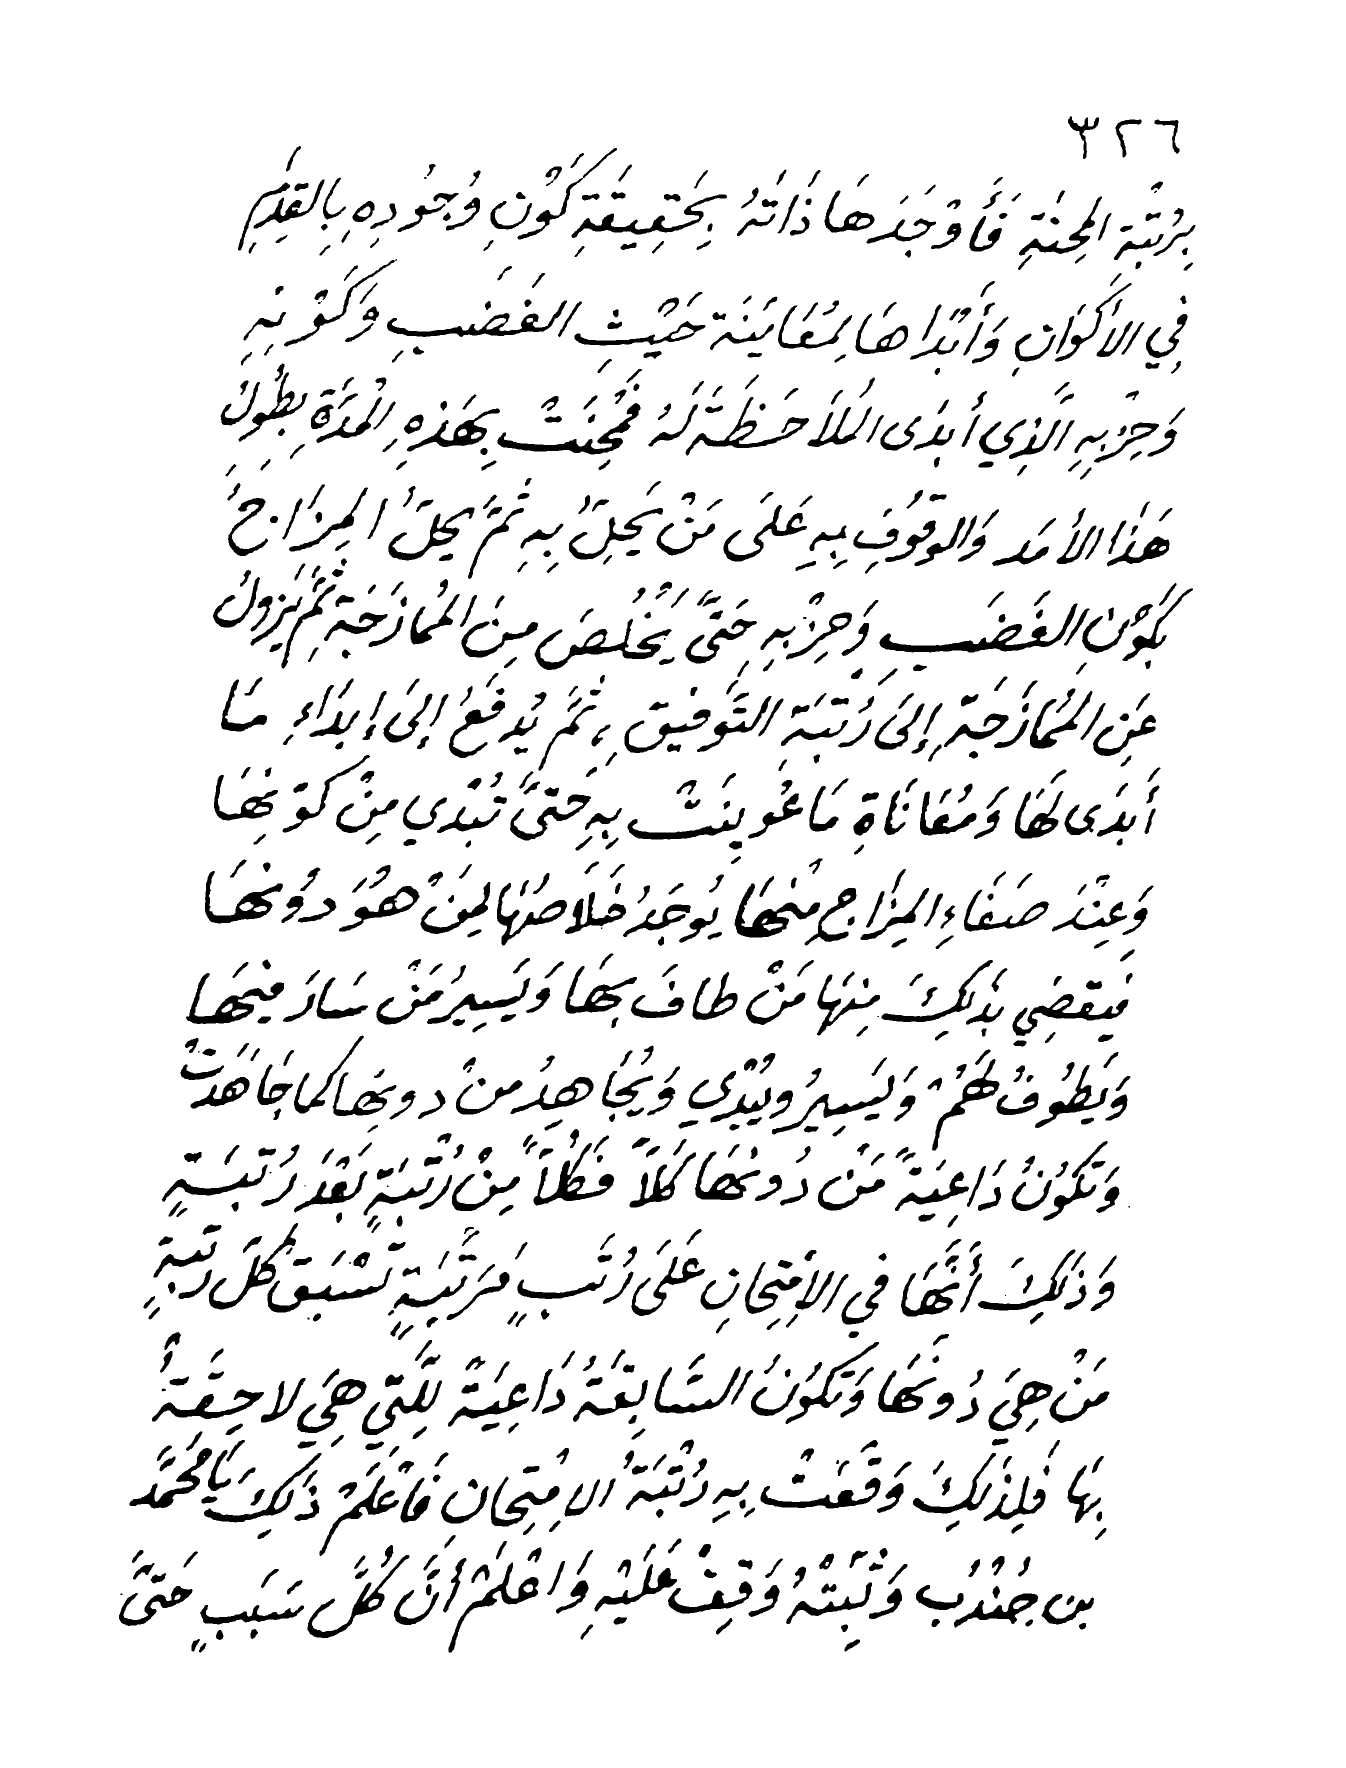 ٣٢٦
بِرُتْبَةِ المِحنَةِ فَأَوْجَدَهَا ذَاتَهُ بِحَقِيقَةِ كَوْنِ وُجُودِهِ بِالقِدَمِ
فِي الأَكوَانِ وَأَبْدَاهَا لِمُعَايَنَة حَيْثِ الغَضَبِ وَكَوْنِهِ
وَحِزْبِهِ الَّذِي أبدَى المُلاَحَظَةَ لَهُ فَمُحِنَتْ بِهَذِهِ المُدَّةِ بِطُولِ
هَذَا الأمَد وَالوقُوفِ بِهِ عَلَى مَنْ يَحِلُّ بِهِ ثُمَّ يحلُّ المِزَاجُ
بكَوْنِ الغَضَبِ وَحِزْبِهِ حَتَّى يَخْلُصَ مِنَ المُمازَجَةِ ثُمَّ يَزولُ
عَنِ المُمَازَجَةِ إِلَى رُتْبَةِ التَّوفِيقِ، ثُمَّ يُدفَعُ إلَى إِبدَاءِ مَا
أَبدَى لَهَا وَمُعَانَاةِ مَا عُوينَتْ بِهِ حَتَّى تُبْدي مِنْ كوْنِهَا
وَعِنْدَ صَفَاءِ المِزَاجِ مِنْهَا يُوجَدُ خَلاَصُهَا لِمَنْ هُوَ دُونهَا
فَيَقضِي بذَلِكَ مِنهَا مَنْ طافَ بِهَا وَيَسِيرُ مَنْ سَارَ فيهَا
وَيَطُوفُ لَهُمْ وَيَسِيرُ ويُبْدِي وَيُجَاهِدُ منْ دونِهَا كما جَاهَدَتْ
وَتَكُونُ دَاعِيَةً مَنْ دُونَهَا كَلاًّ فَكَلاًّ مِنْ رُتْبَةٍ بَعْدَ رُتبَةٍ
وَذَلِكَ أَنَّهَا في الاِمتِحَانِ عَلَى رُتَبٍ مُرَتَّبَةٍ تَسْبَقُ كلُّ رُتبَةٍ
مَنْ هِيَ دُونَهَا وَتَكُونُ السَّابِقَةُ دَاعِيَةً لِلَّتِي هِيَ لاحِقَةٌ
بِهَا فَلِذَلِكَ وَقَعَتْ بِهِ رُتْبَةُ الاِمْتِحَانِ فَاعْلَمْ ذَلِكَ يَا مُحَمَّد
بن جُنْدُب وَثَبِّتْهُ وَقِفْ عَلَيْهِ وَاعْلَمْ أَنَّ كُلَّ سَبَبٍ حَتَّى